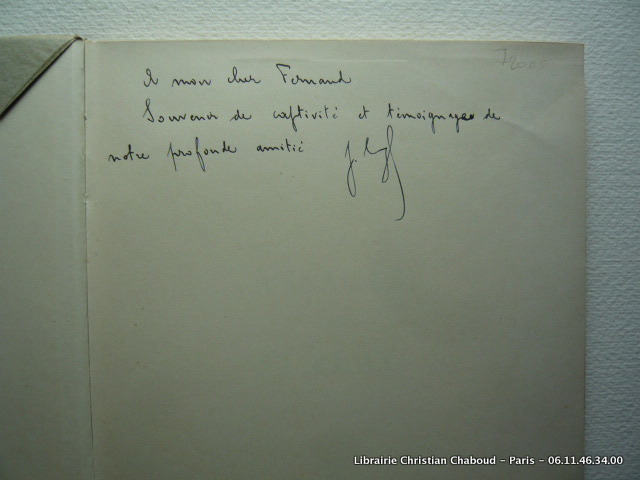 à mon cher Fernand
Souvenir de captivité et témoignage de
notre profonde amitié
Librairie Christian Chaboud - Paris - 06.11.46.34.00